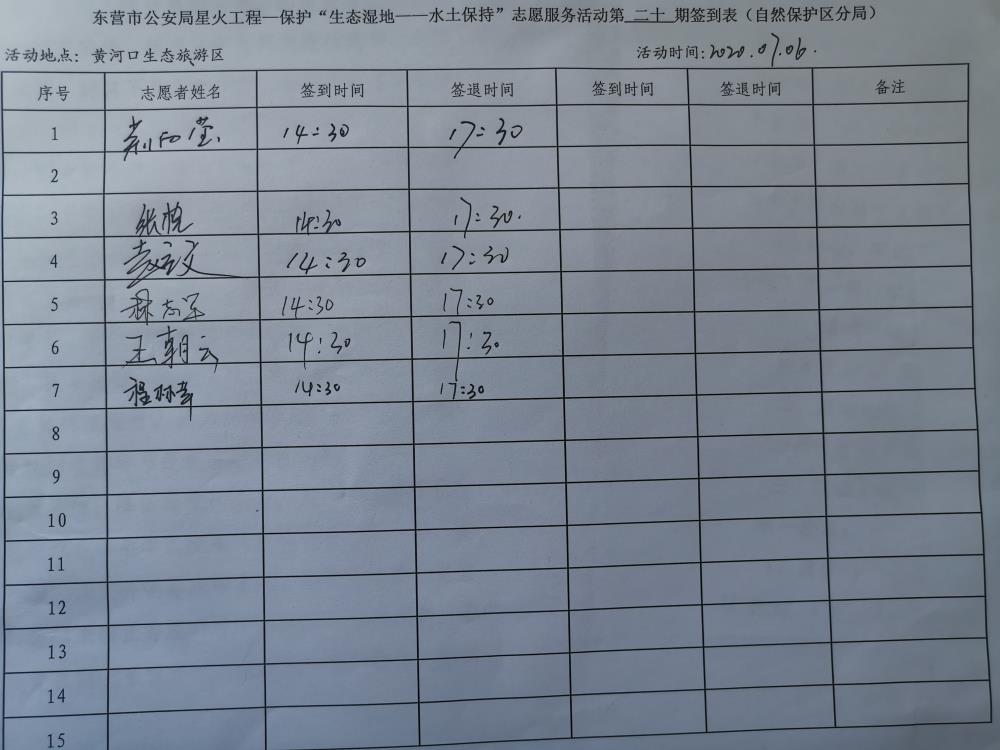 东营市公安局星火工程—保护“生态湿地——水土保持”志愿服务活动第 二十 期签到表（自然保护区分局）
活动地点：黄河口生态旅游区 活动时间:2020.07.06.
序号 志愿者姓名 签到时间 签退时间 签到时间 签退时间 备注
1 14:30 17:30
2
3 14:30 17:30.
4 14:30 17:30
5 林志军 14:30 17:30
6 王朝云 14:30 17:30
7 程林峰 14:30 17:30
8
9
10
11
12
13
14
15